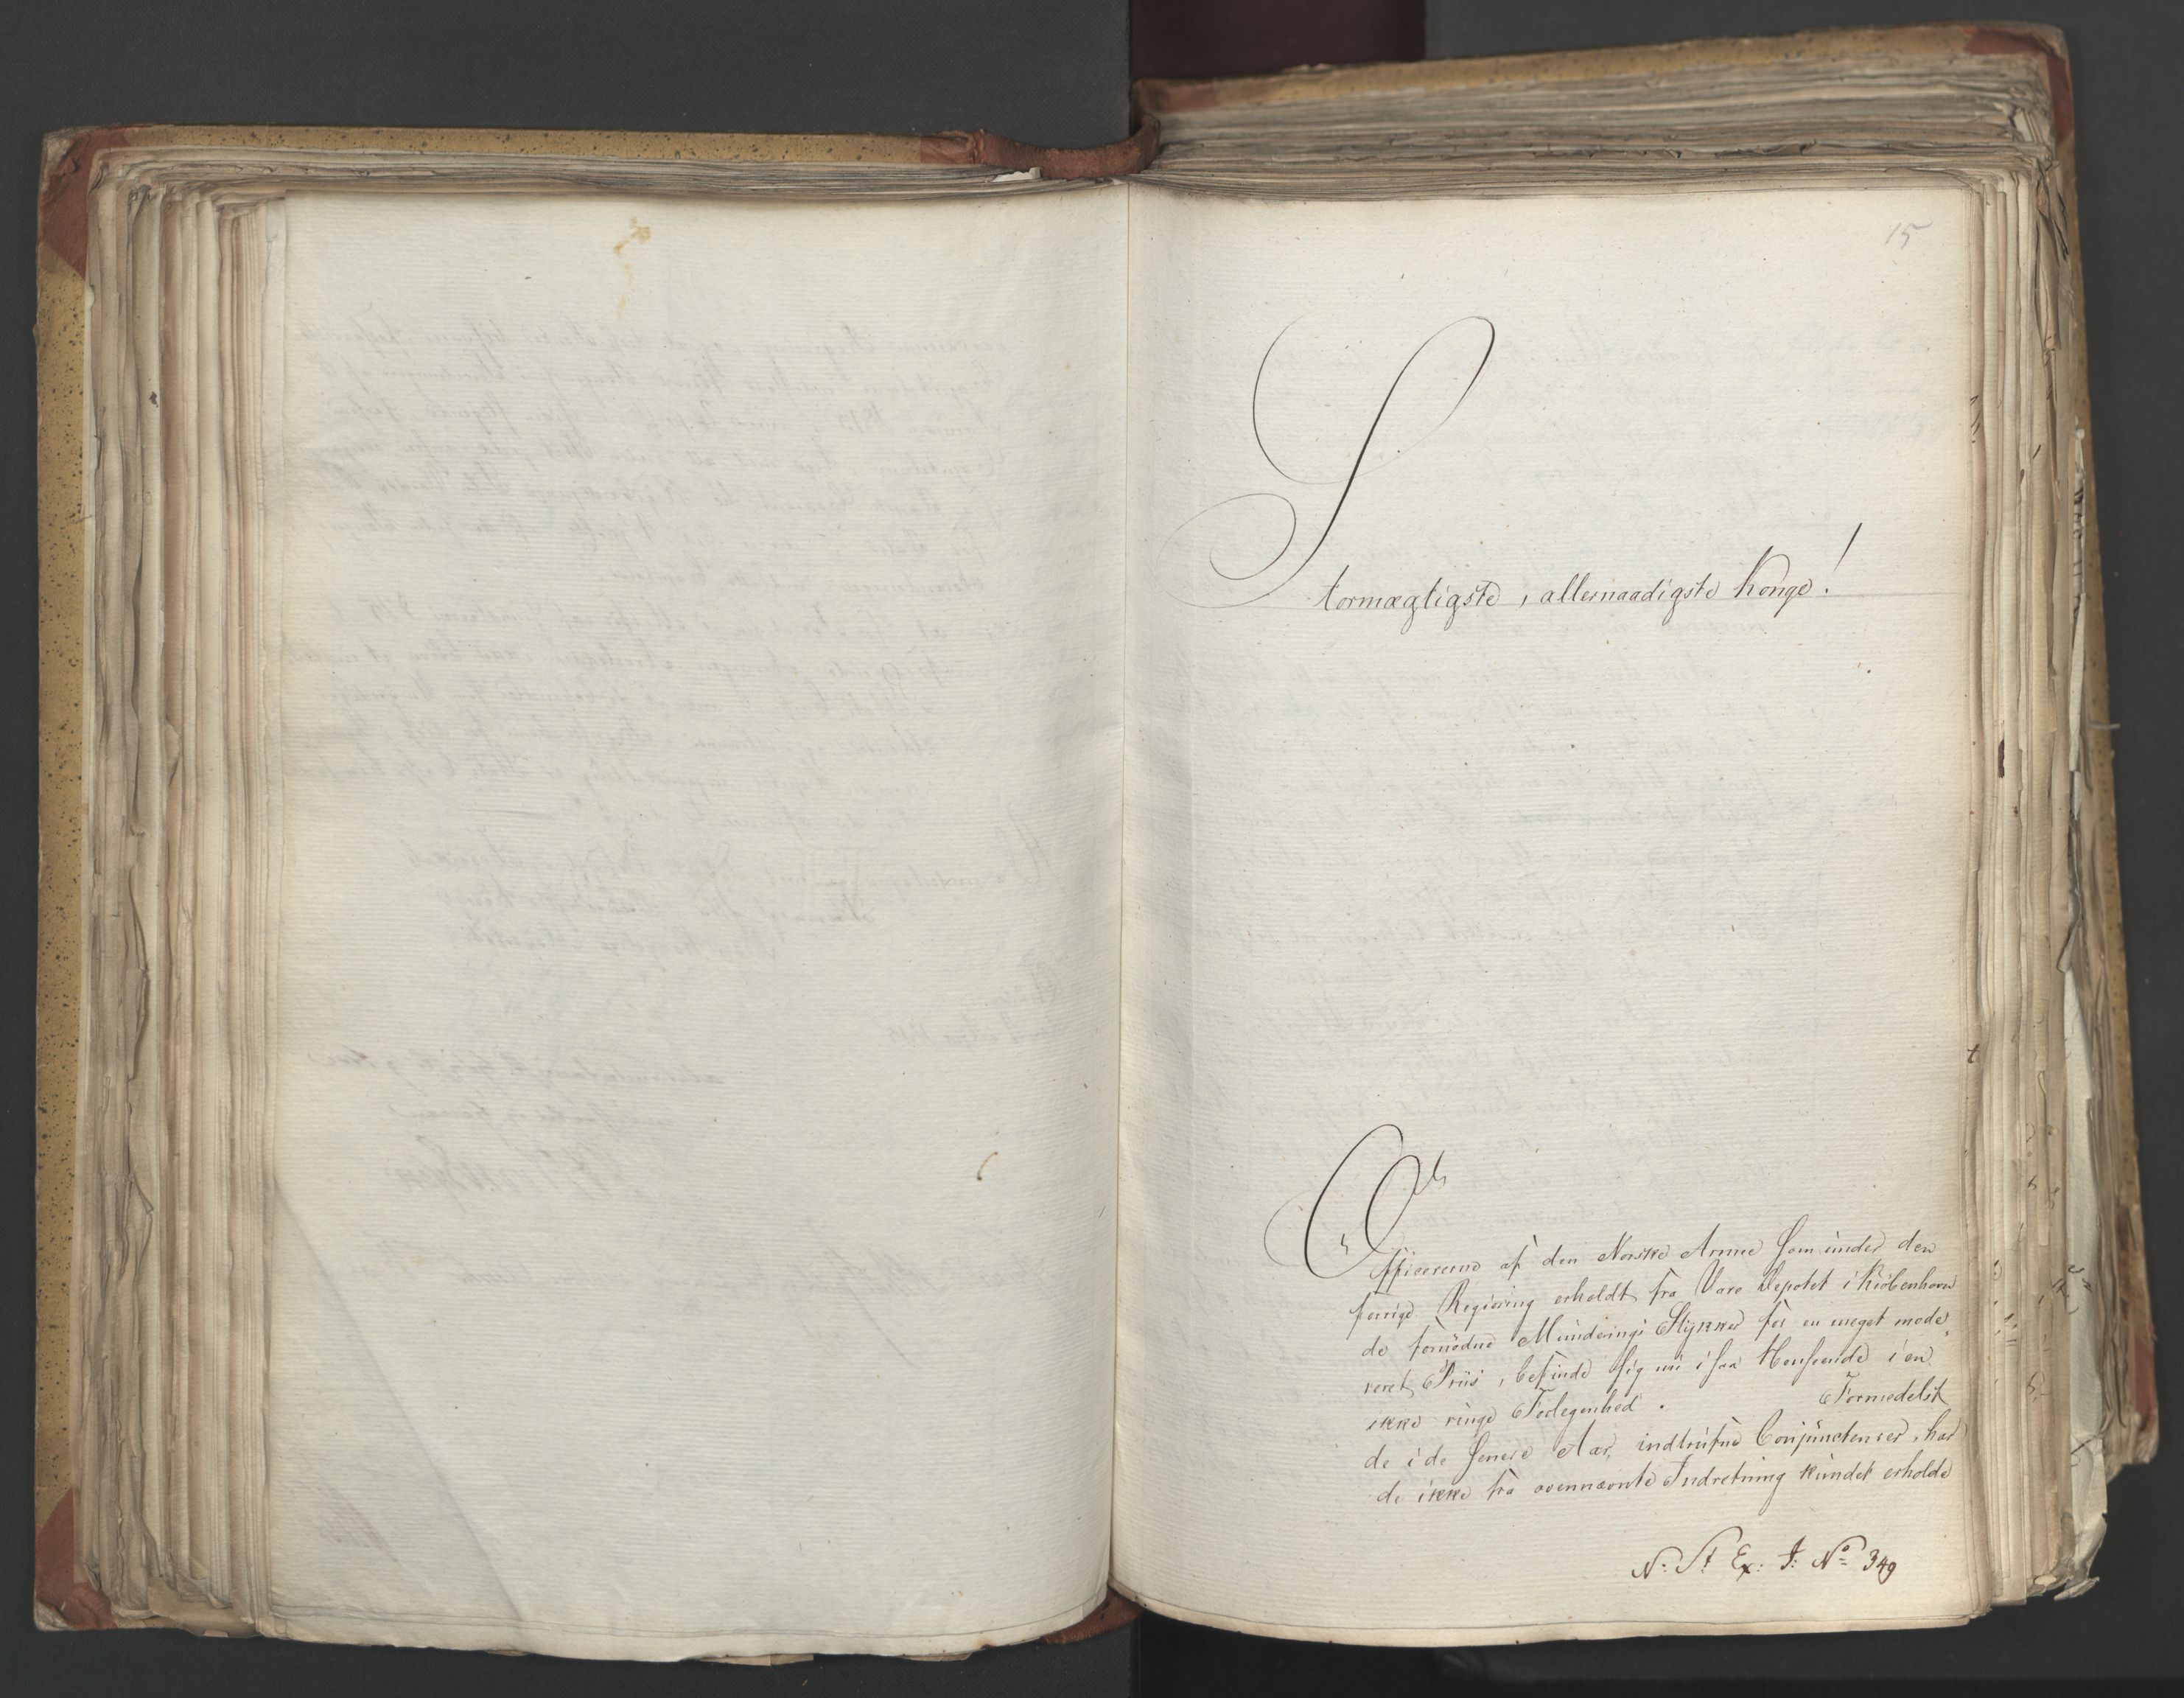 15
Stormægtigste, allernaadigste Konge!
Officererne af den Norske Armee som under den
forrige Regiering erholdt fra Vare Depotet i Kiöbenhavn
de fornödne Munderings Stykker for en meget mode,
reret Priis, befinde sig nu i saa Henseende i en
ikke ringe Forlegenhed. Formedelst
de i de senere Aar, indtrufne Conjuncturer, har
de ikke fra ovennævnte Indretning kundet erholde
N: St Ex: J: No 349